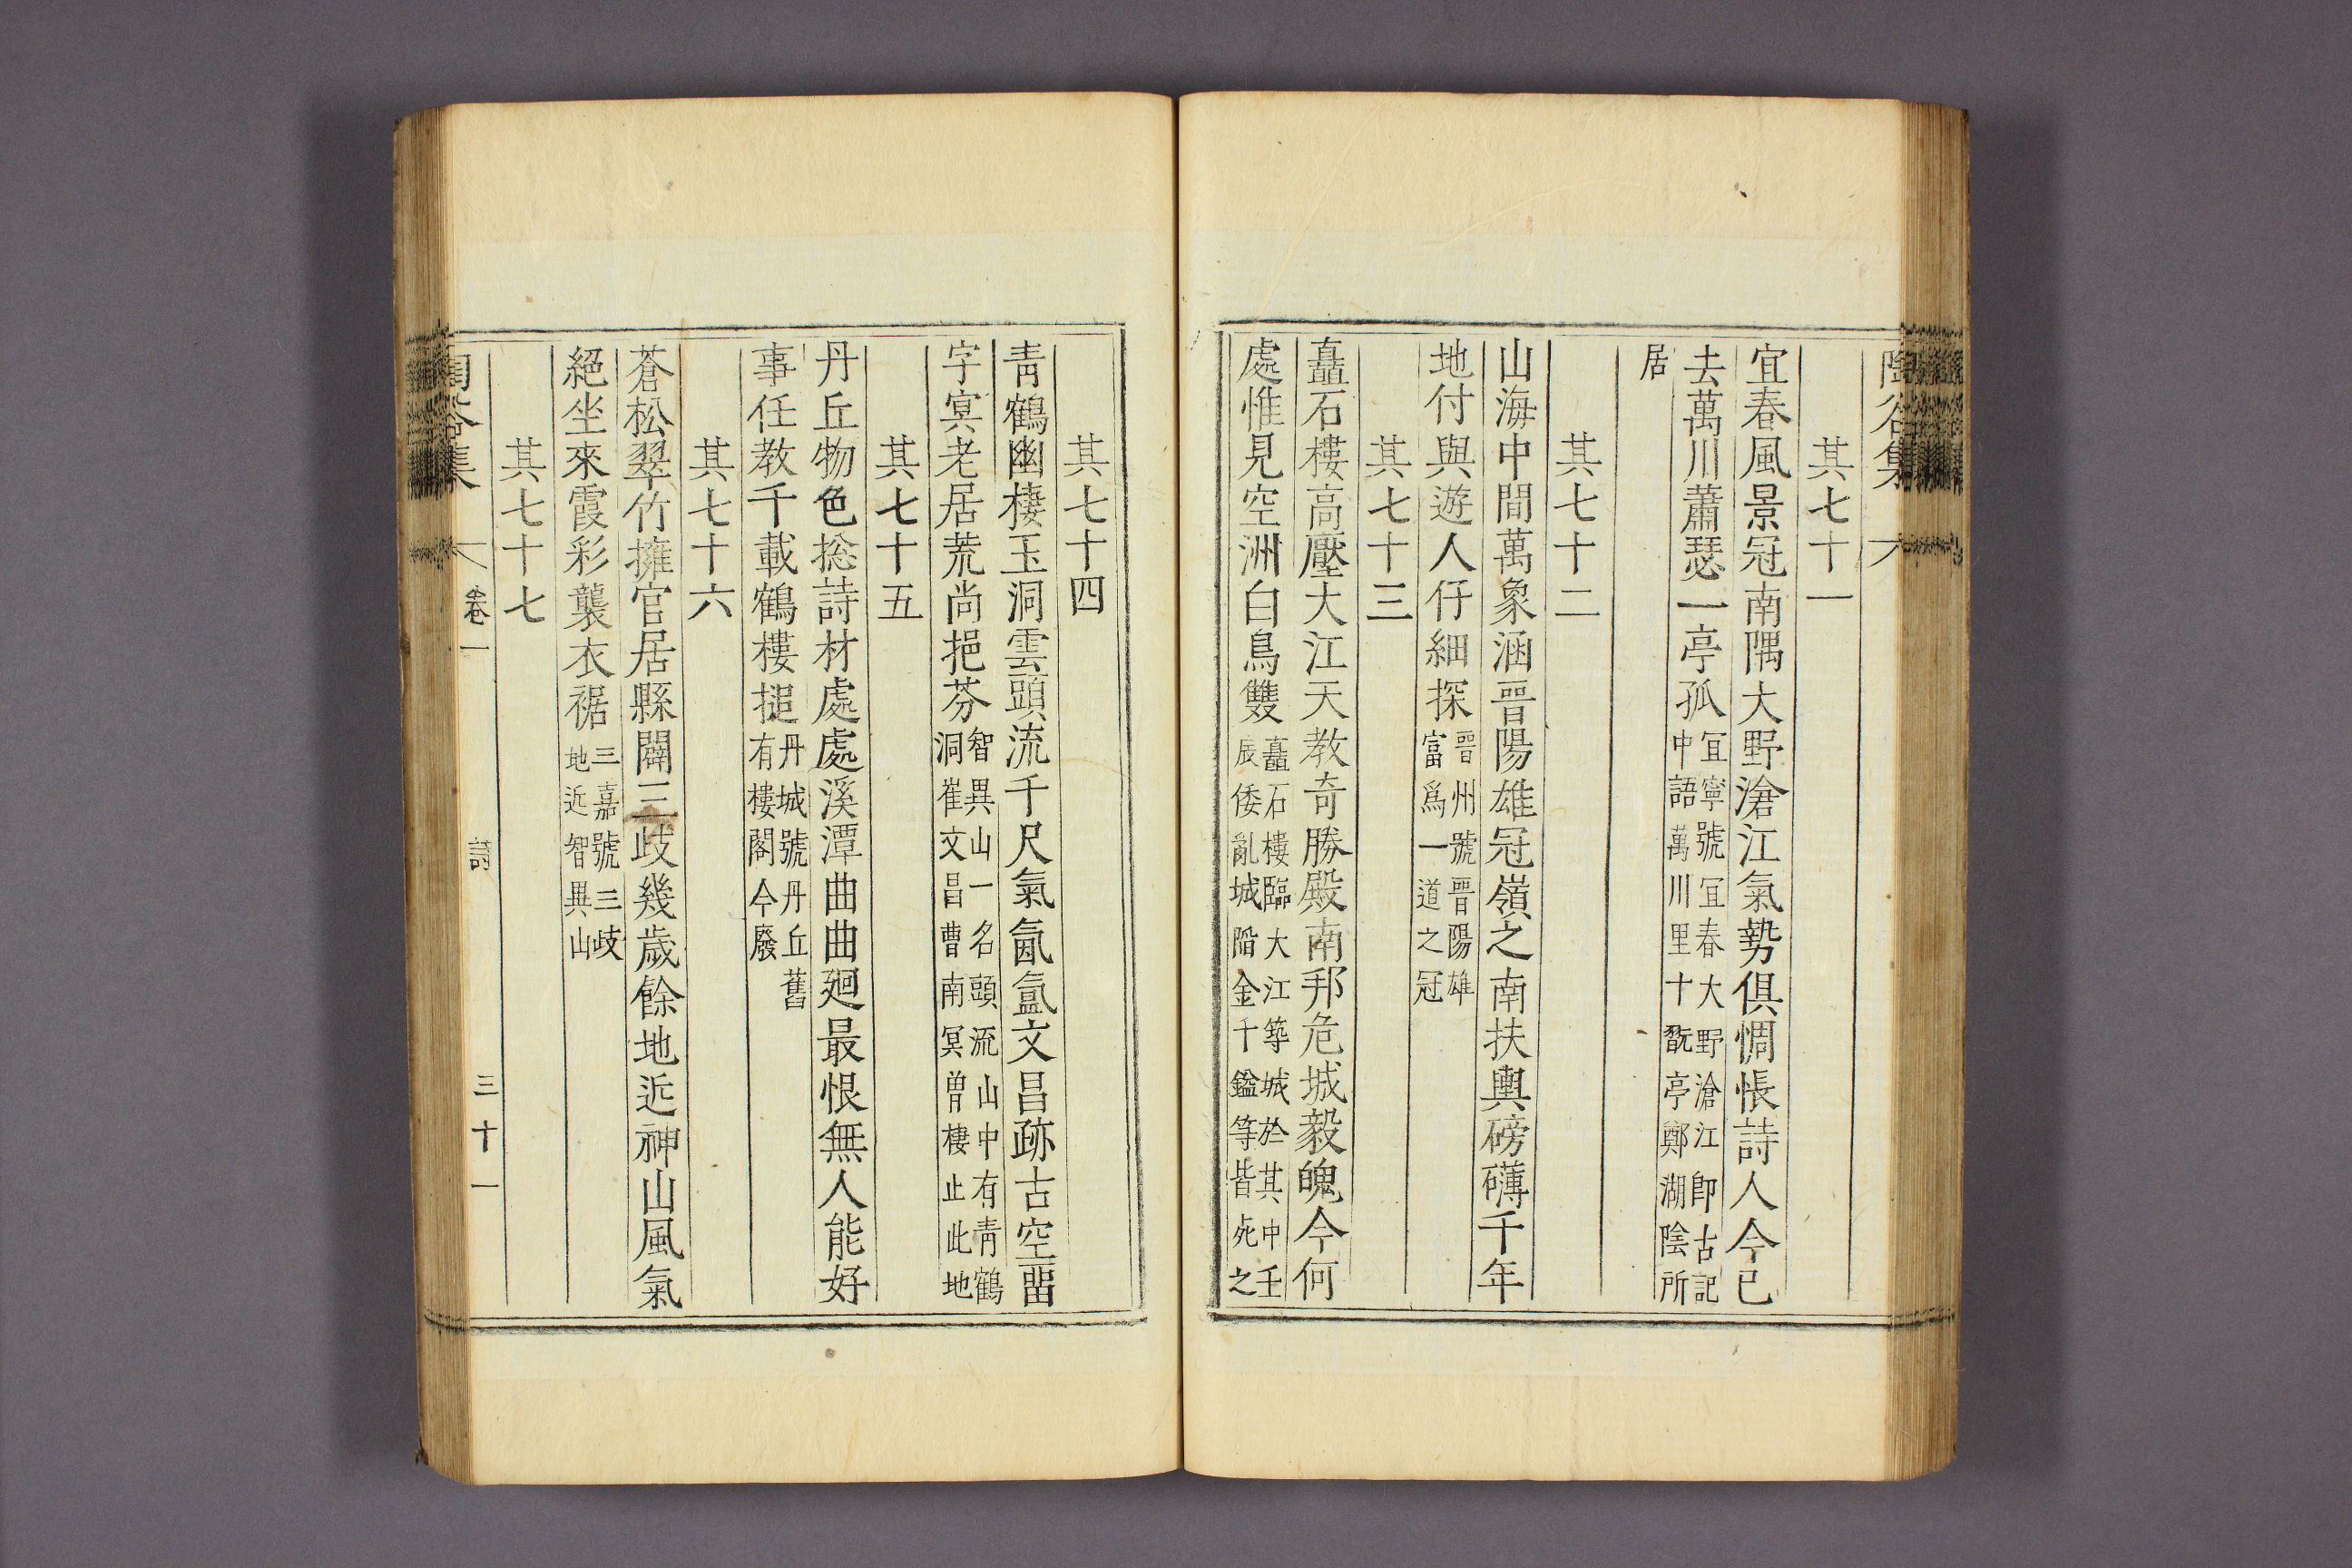 其七十一
宜春風景冠南隅大野滄江氣勢俱惆悵詩人今已
去萬川蕭瑟一亭孤
宜寧號宜春大野滄江卽古記
中語萬川里十翫亭鄭湖陰所
居
其七十二
山海中間萬象涵晉陽雄冠嶺之南扶輿磅礴千年
地付與遊人仔細探
晉州號晉陽雄
富爲一道之冠
其七十三
矗石樓高壓大江天教奇勝殿南邦危城毅魄今何
處惟見空洲白鳥雙
矗石樓臨大江築城於其中壬
辰倭亂城陷金千鎰等皆死之
其七十四
靑鶴幽棲玉洞雲頭流千尺氣氤氳文昌跡古空留
字冥老居荒尚挹芬
智異山一名頭流山中有靑鶴
洞崔文昌曹南冥曾棲止此地
其七十五
丹丘物色捴詩材處處溪潭曲曲廻最恨無人能好
事任教千載鶴樓搥
丹城號丹丘舊
有樓閣今廢
其七十六
蒼松翠竹擁官居縣闢三歧幾歲餘地近神山風氣
絕坐來霞彩襲衣裾
三嘉號三歧
地近智異山
其七十七
卷一
詩
三十一